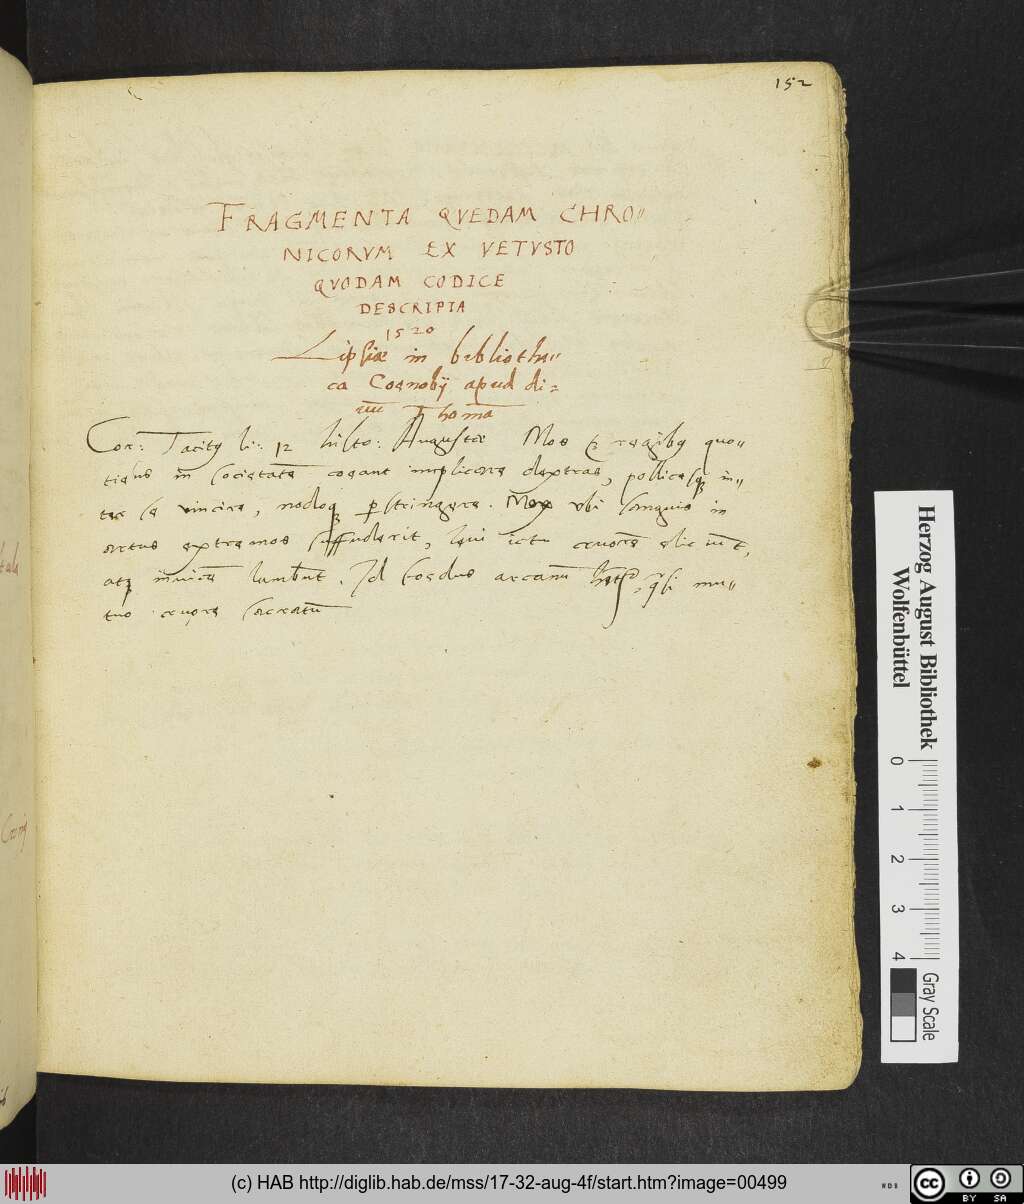 152
FRAGMENTA QVEDAM CHRO〃
NICORVM EX VETVSTO
QVODAM CODICE
DESCRIPTA
1520
Lipsiæ in bibliothe〃
ca Coenobij apud di=
uū Thomā
Cor: Tacitꝰ li: 12 histo: Augustæ Mos ē regibꝰ quo〃
tiens in societatē coeant implicare dextras, pollicesqꝫ in〃
ter se vincire, nodoqꝫ ꝑstringere. Mox vbi sanguis in
artus extremos suffuderit, leui ictu cruorē eliciūt,
atqꝫ inuicē lambūt. Id foedus arcanū, qͣsi mu〃
tuo cruore sacratū
Herzog August Bibliothek
Wolfenbüttel
0 1 2 3 4
Gray Scale
(c) HAB http://diglib.hab.de/mss/17-32-aug-4f/start.htm?image=00499
cc BY SA